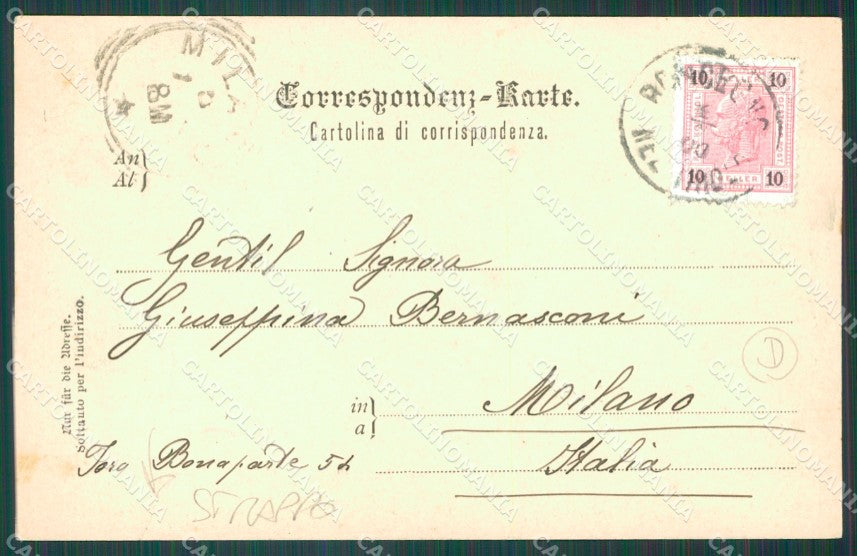 MILA
8M
Correspondenz-Karte.
Cartolina di corrispondenza.
10 10
10 HELLER 10
An
Al
Gentil Signora
Giuseppina Bernasconi
in
a
Milano
Foro Bonaparte 54
Italia
Nur für die Adresse.
Soltanto per l'indirizzo.
D
STRAPPO
CARTOLINOMANIA